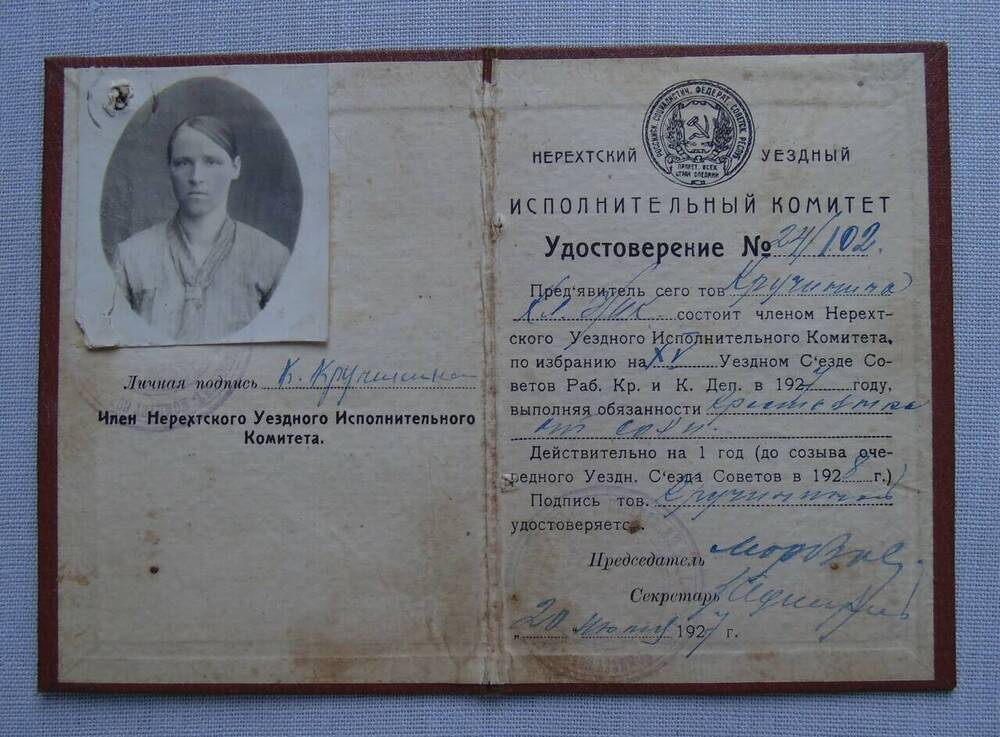 Личная подпись К. Кручинина
Член Нерехтского Уездного Исполнительного
Комитета.
РОССИЙСК. СОЦИАЛИСТИЧ. ФЕДЕРАТ. СОВЕТСК. РЕСПУБ.
ПРОЛЕТ. ВСЕХ
СТРАН СОЕДИНИ
НЕРЕХТСКИЙ УЕЗДНЫЙ
ИСПОЛНИТЕЛЬНЫЙ КОМИТЕТ
Удостоверение № 24/102.
Пред'явитель сего тов Кручинина
Кл. Ник состоит членом Нерехт-
ского Уездного Исполнительного Комитета,
по избранию на XV Уездном С'езде Со-
ветов Раб. Кр. и К. Деп. в 1927 году,
выполняя обязанности крестьянка
от сохи.
Действительно на 1 год (до созыва оче-
редного Уездн. С'езда Советов в 1928 г.)
Подпись тов. Кручининой
удостоверяется.
Председатель
Секретарь
„20 " 1927 г.